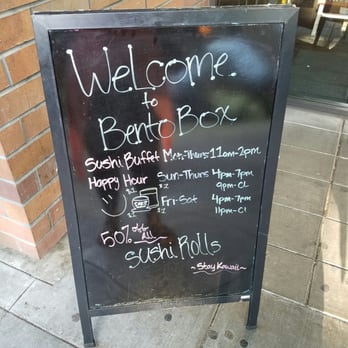 Welcome
to
Bento Box
Sushi Buffet Mon-Thurs 11am-2pm
Happy Hour Sun-Thurs 4pm-7pm
9pm-CL
$1 $2
Fri-Sat 4pm-7pm
$2 11pm-CL
50% off ALL
Sushi Rolls
~Stay Kawaii~